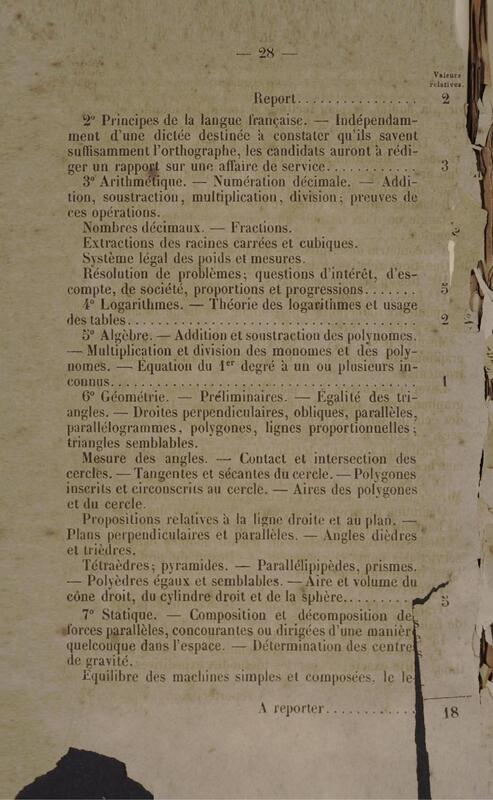 — 28 —
Valeurs
relatives.
Report................ 2
2° Principes de la langue française. — Indépendam-
ment d'une dictée destinée à constater qu'ils savent
suffisamment l'orthographe, les candidats auront à rédi-
ger un rapport sur une affaire de service............ 3
3° Arithmétique. — Numération décimale. — Addi-
tion, soustraction, multiplication, division; preuves de
ces opérations.
Nombres décimaux. — Fractions.
Extractions des racines carrées et cubiques.
Système légal des poids et mesures.
Résolution de problèmes; questions d'intérêt, d'es-
compte, de société, proportions et progressions....... 5
4° Logarithmes. — Théorie des logarithmes et usage
des tables....................................... 2
5° Algèbre. — Addition et soustraction des polynomes.
— Multiplication et division des monomes et des poly-
nomes. — Equation du 1er degré à un ou plusieurs in-
connus.......................................... 1
6° Géométrie. — Préliminaires. — Égalité des tri-
angles. — Droites perpendiculaires, obliques, parallèles,
parallélogrammes, polygones, lignes proportionuelles;
triangles semblables.
Mesure des angles. — Contact et intersection des
cercles. — Tangentes et sécantes du cercle. — Polygones
inscrits et circonscrits au cercle. — Aires des polygones
et du cercle.
Propositions relatives à la ligne droite et au plan. —
Plans perpendiculaires et parallèles. — Angles dièdres
et trièdres.
Tétraèdres; pyramides. — Parallélipipèdes, prismes.
— Polyèdres égaux et semblables. — Aire et volume du
cône droit, du cylindre droit et de la sphère.......... 5
7° Statique. — Composition et décomposition de
forces parallèles, concourantes ou dirigées d'une manièr
quelconque dans l'espace. — Détermination des centre
de gravité.
Equilibre des machines simples et composées, le le
A reporter............. 18